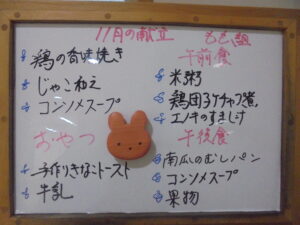 11月の献立
鶏の香味焼き
じゃこ和え
コンソメスープ
おやつ
手作りきなこトースト
牛乳
もも組
午前食
米粥
鶏団子ケチャップ煮
エノキのすまし汁
午後食
南瓜のむしパン
コンソメスープ
果物